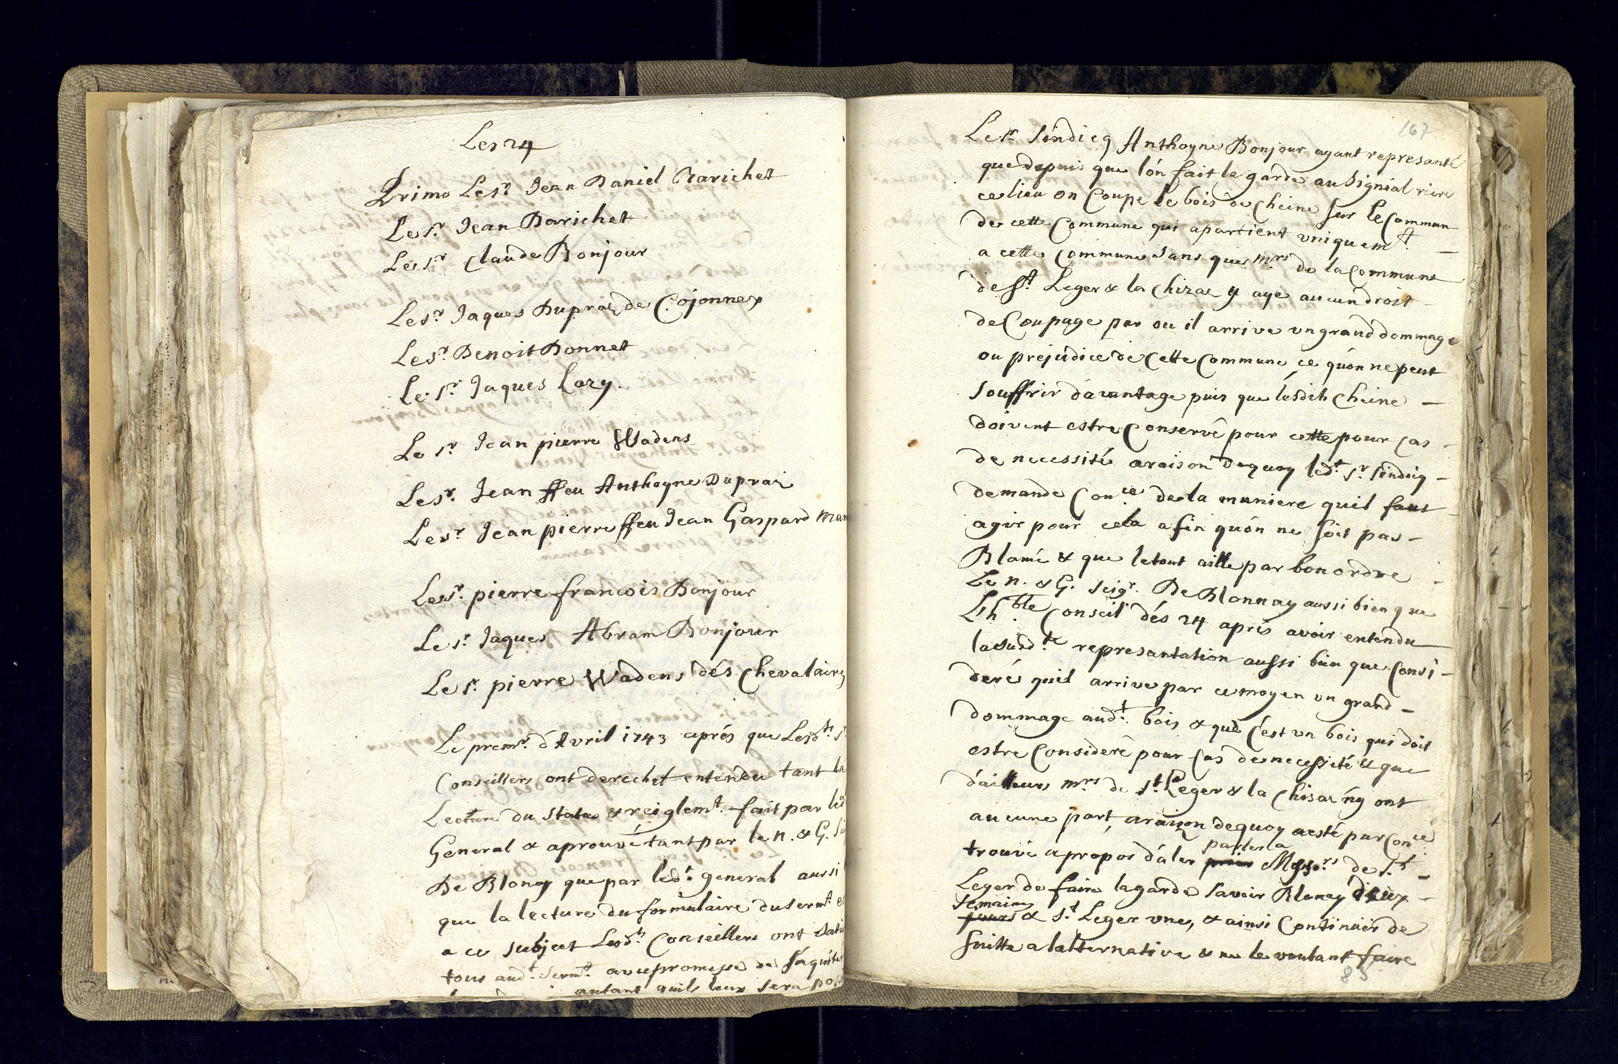 Les 24
Primo Le sr. Jean Daniel Barichet
Le sr. Jean Barichet
Le sr. Claude Bonjour
Le sr. Jaques Dupraz de Cojonnex
Le sr. Benoit Bonnet
Le sr. Jaques Cory.
Le sr. Jean pierre Wadens
Le sr. Jean ffeu Anthoyne Dupraz
Le sr. Jean pierre ffeu Jean Gaspard Mam
Le sr. pierre francois Bonjour
Le sr. Jaques Abram Bonjour
Le sr. pierre Wadens dés Chevalaires
Le premr. d'Avril 1743 aprés que Lesdts. sr
Conseillers ont derechef entendu tant la
Lecture du statu & reiglemt. fait par led
General & aprouvé tant par le n. & G. Si
De Blonay que par ledt. general aussi
que la lecture du formulaire du sermt. e
a ce subject Lesdts. Conseillers ont
tous audt. sermt. avec promesse de s'aquiter
autant quils leur sera po
167
Le sr. sindicq Anthoyne Bonjour ayant represanté
que depuis que lón fait la garde au signial riere
ce lieu on Coupe le bois de Cheine sur le Commun
de cette Commune qui apartient vniquemt. –
a cette Commune sans que mrs. de la Commune
de st. Leger & la Chizaz y aye aucun droit –
de Coupage par ou il arrive vn grand dommage
ou prejudice de cette Commune, ce quón ne peut
souffrir d'avantage puis que lesdits Cheine –
doivent estre Conservé pour cette pour Cas –
de necessité a raison dequoy ledt. sr. sindicq –
demande Conce. de la maniere quil faut –
agir pour cela afin quón ne soit pas –
Blamé & que le tout aille par bon ordre –
Le n. & G. seigr. De Blonnay aussi bien que
Lhble Conseil dés 24 aprés avoir entendu
la susdte. represantation aussi bien que Consi –
deré quil arrive par ce moyen vn grand –
dommage audt. bois & que c'est vn bois qui doit
estre Consideré pour Cas de necessité & que
d'ailleurs mrs. de st. Leger & la Chisaz n'y ont
aucune part, a raison dequoy a esté par Conce
parler a
trouvé a propos d'aler Messrs. de st. –
Leger de faire la garde savoir Blonay deux –
semaines
jours & st. Leger vne, & ainsi Continuer de
suitte a lalternative & ne le voulant faire
85